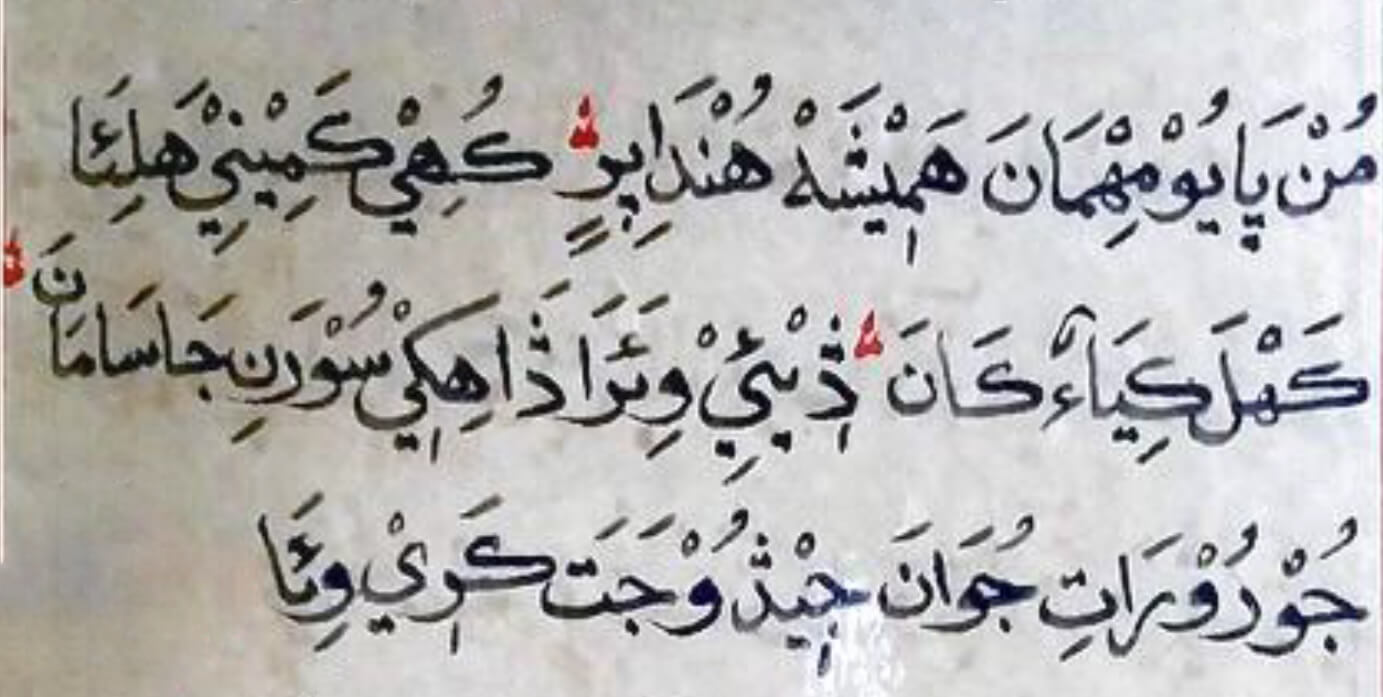 مُنْ پَايُوْ مِهْمَانَ هَمِيْشَهْ هُنْدَا پِرٍ كُهِيْ كَمِيْنِيْ هَلِئَا
كَهْلَ كِيَاءْ كَانَ ڎِيْئِيْ وِئَرَا ڎَا هِكِيْ سُوْرَنِ جَا سَامَانَ
جُوْ دُوْرَاتِ جُوَانَ جِيْڎُوْ جَتَ كَرِيْ وِئَا